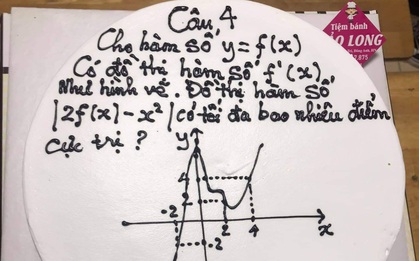 Câu 4
Tiệm bánh
ẢO LONG
Cho hàm số y = f(x)
Có đồ thị hàm số f'(x)
Như hình vẽ. Đồ thị hàm số
|2f(x) - x²| có tối đa bao nhiêu điểm
cực trị ?
y
4
2
-2
2
4
x
-2